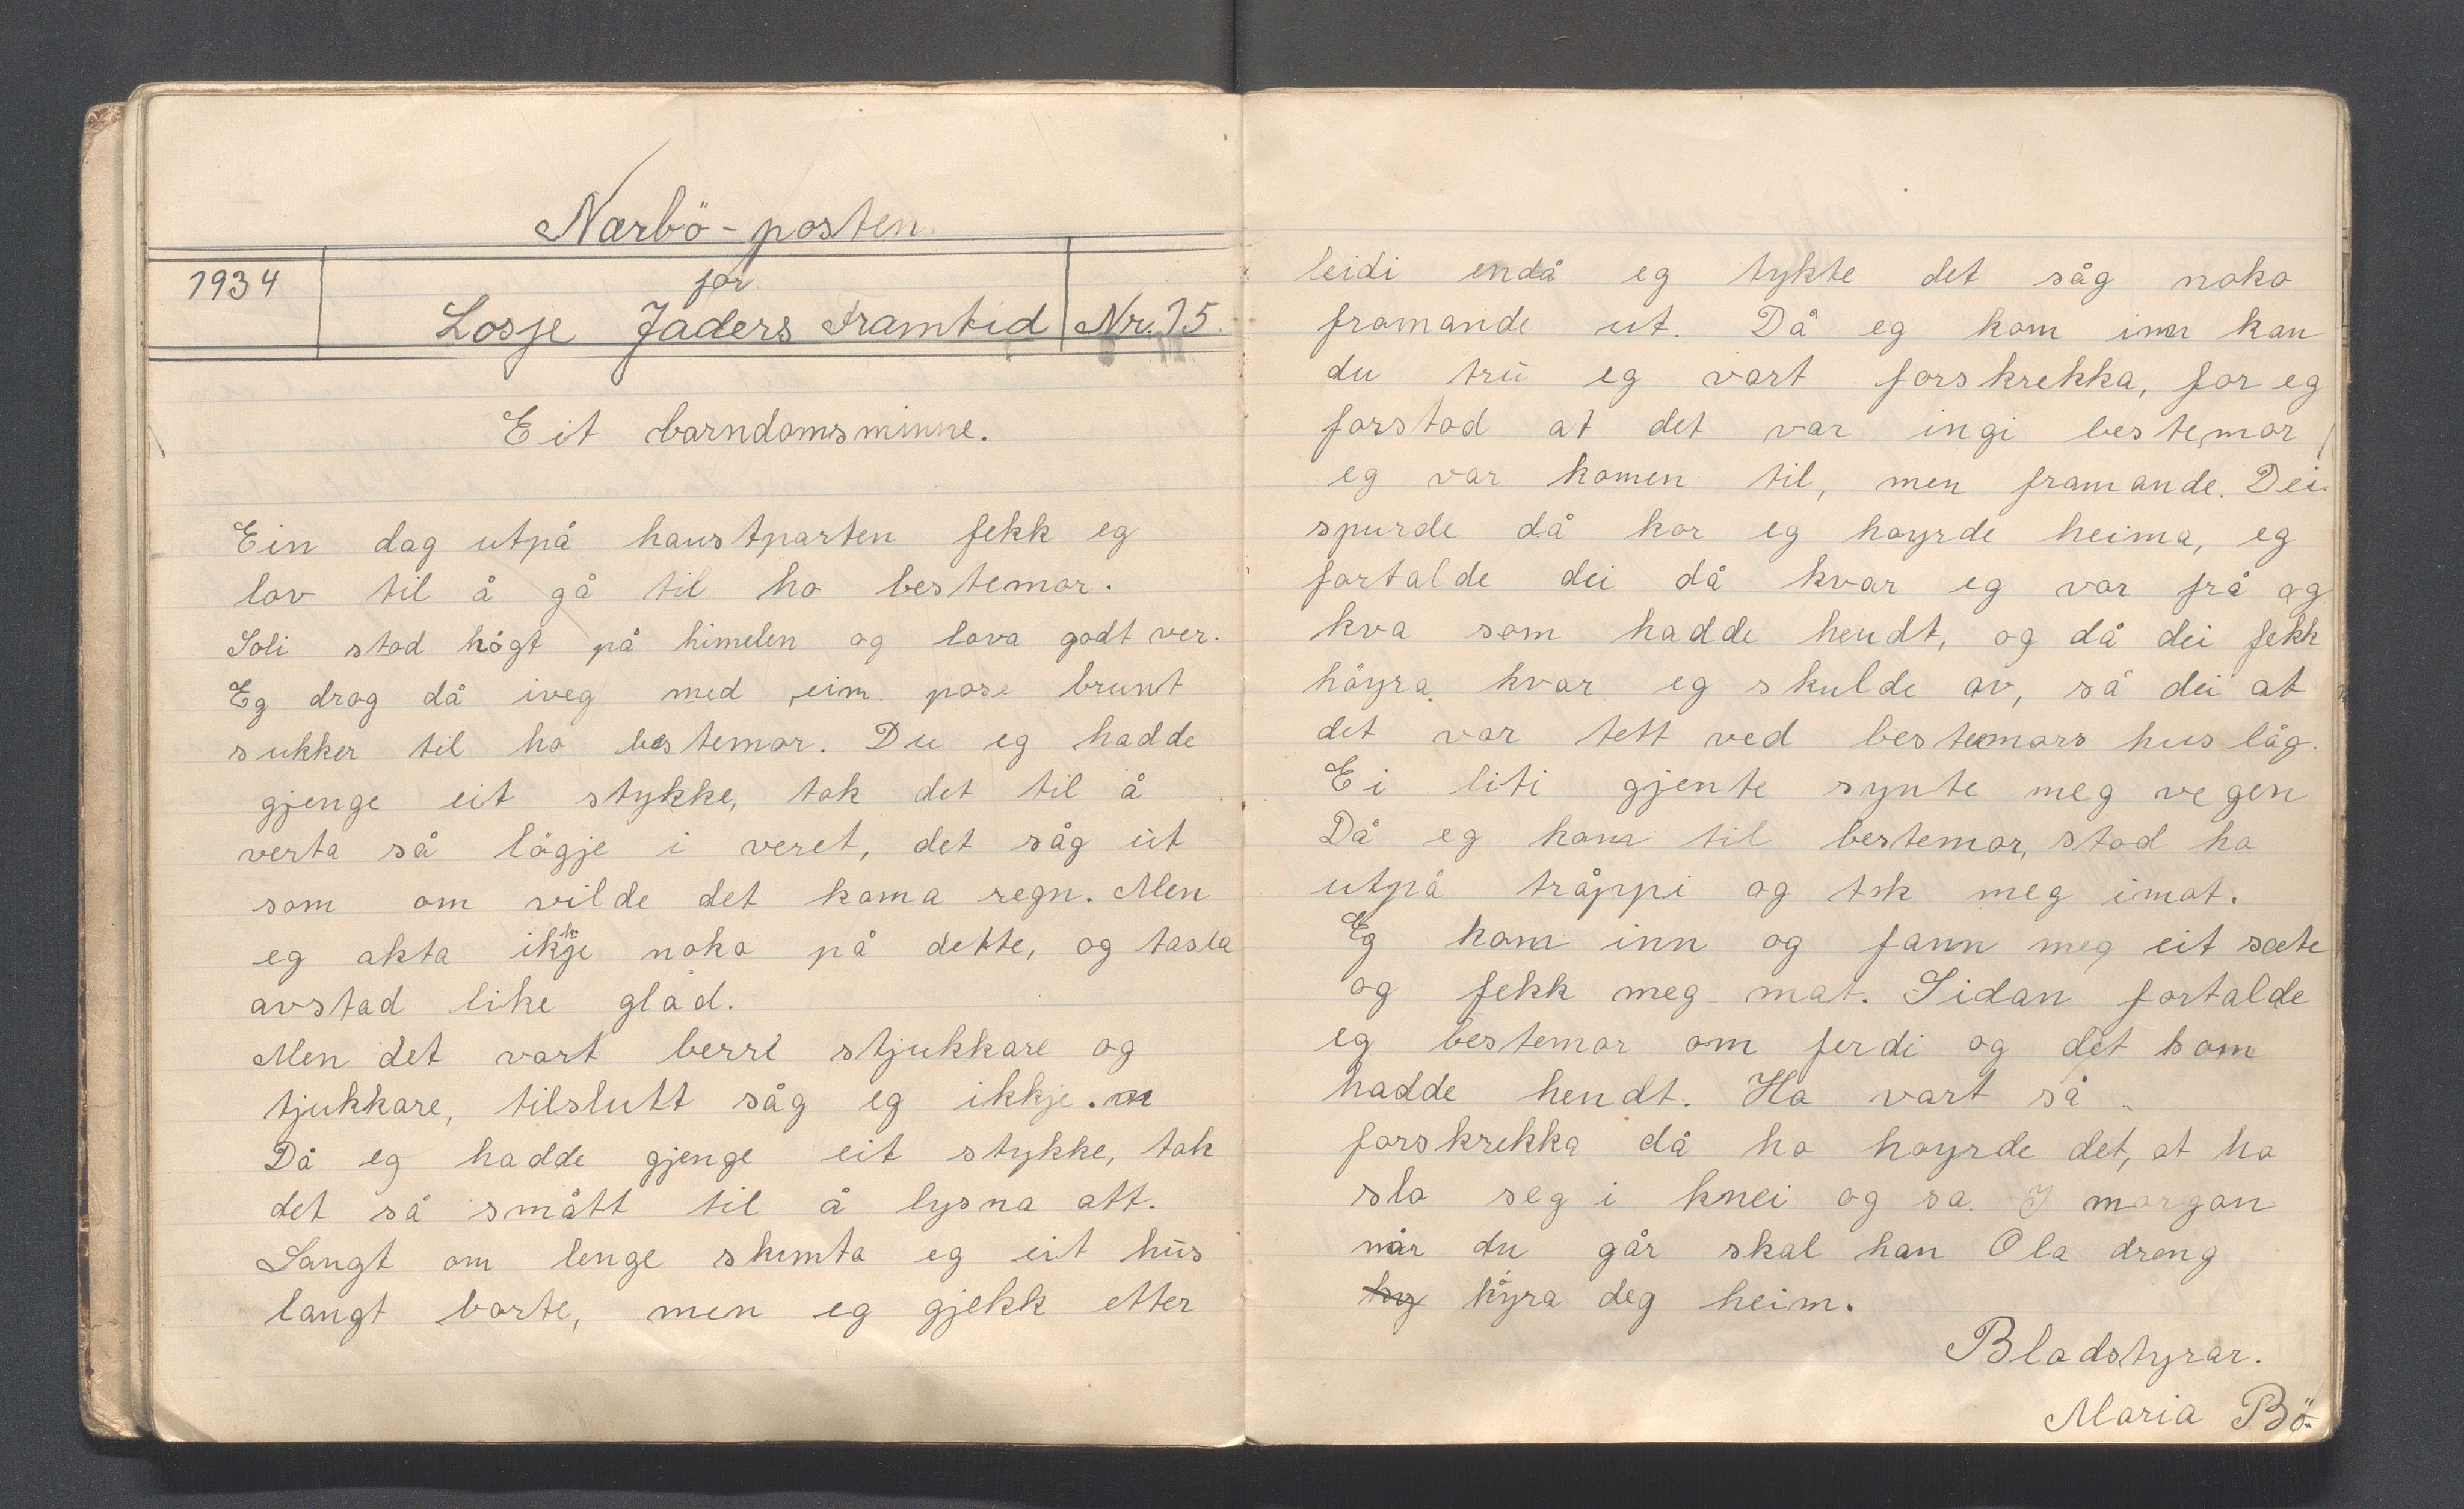 Nærbö-posten.
1934
for
Losje Jaders Framtid
Nr. 15.
Eit barndomsminne.
Ein dag utpå haustparten fekk eg
lov til å gå til ho bestemor.
Soli stod högt på himelen og lova godt ver.
Eg drog då iveg med ein pose brunt
sukker til ho bestemor. Du eg hadde
gjenge eit stykke, tok det til å
verta så lögje i veret, det såg ut
som om vilde det koma regn. Men
eg akta ikkje noko på dette, og tasla
avstad like glad.
Men det vart berre stjukkare og
tjukkare, tilslutt såg eg ikkje.
Då eg hadde gjenge eit stykke, tok
det så smått til å lysna att.
Langt om lenge skimta eg eit hus
langt borte, men eg gjekk etter
leidi endå eg tykte det såg noko
framande ut. Då eg kom inn kan
du tru eg vart forskrekka, for eg
forstod at det var ingi bestemor
eg var komen til, men framande. Dei
spurde då kor eg hoyrde heima, eg
fortalde dei då kvar eg var frå og
kva som hadde hendt, og då dei fekk
höyra kvar eg skulde av, så dei at
det var tett ved bestemors hus låg.
Ei liti gjente synte meg vegen
Då eg kom til bestemor, stod ho
utpå tråppi og tok meg imot.
Eg kom inn og fann meg eit sæte
og fekk meg mat. Sidan fortalde
eg bestemor om ferdi og det som
hadde hendt. Ho vart så
forskrekka då ho hoyrde det, at ho
slo seg i knei og sa. I morgon
når du går skal han Ola dreng
köyra deg heim.
Bladstyrar.
Maria Bö